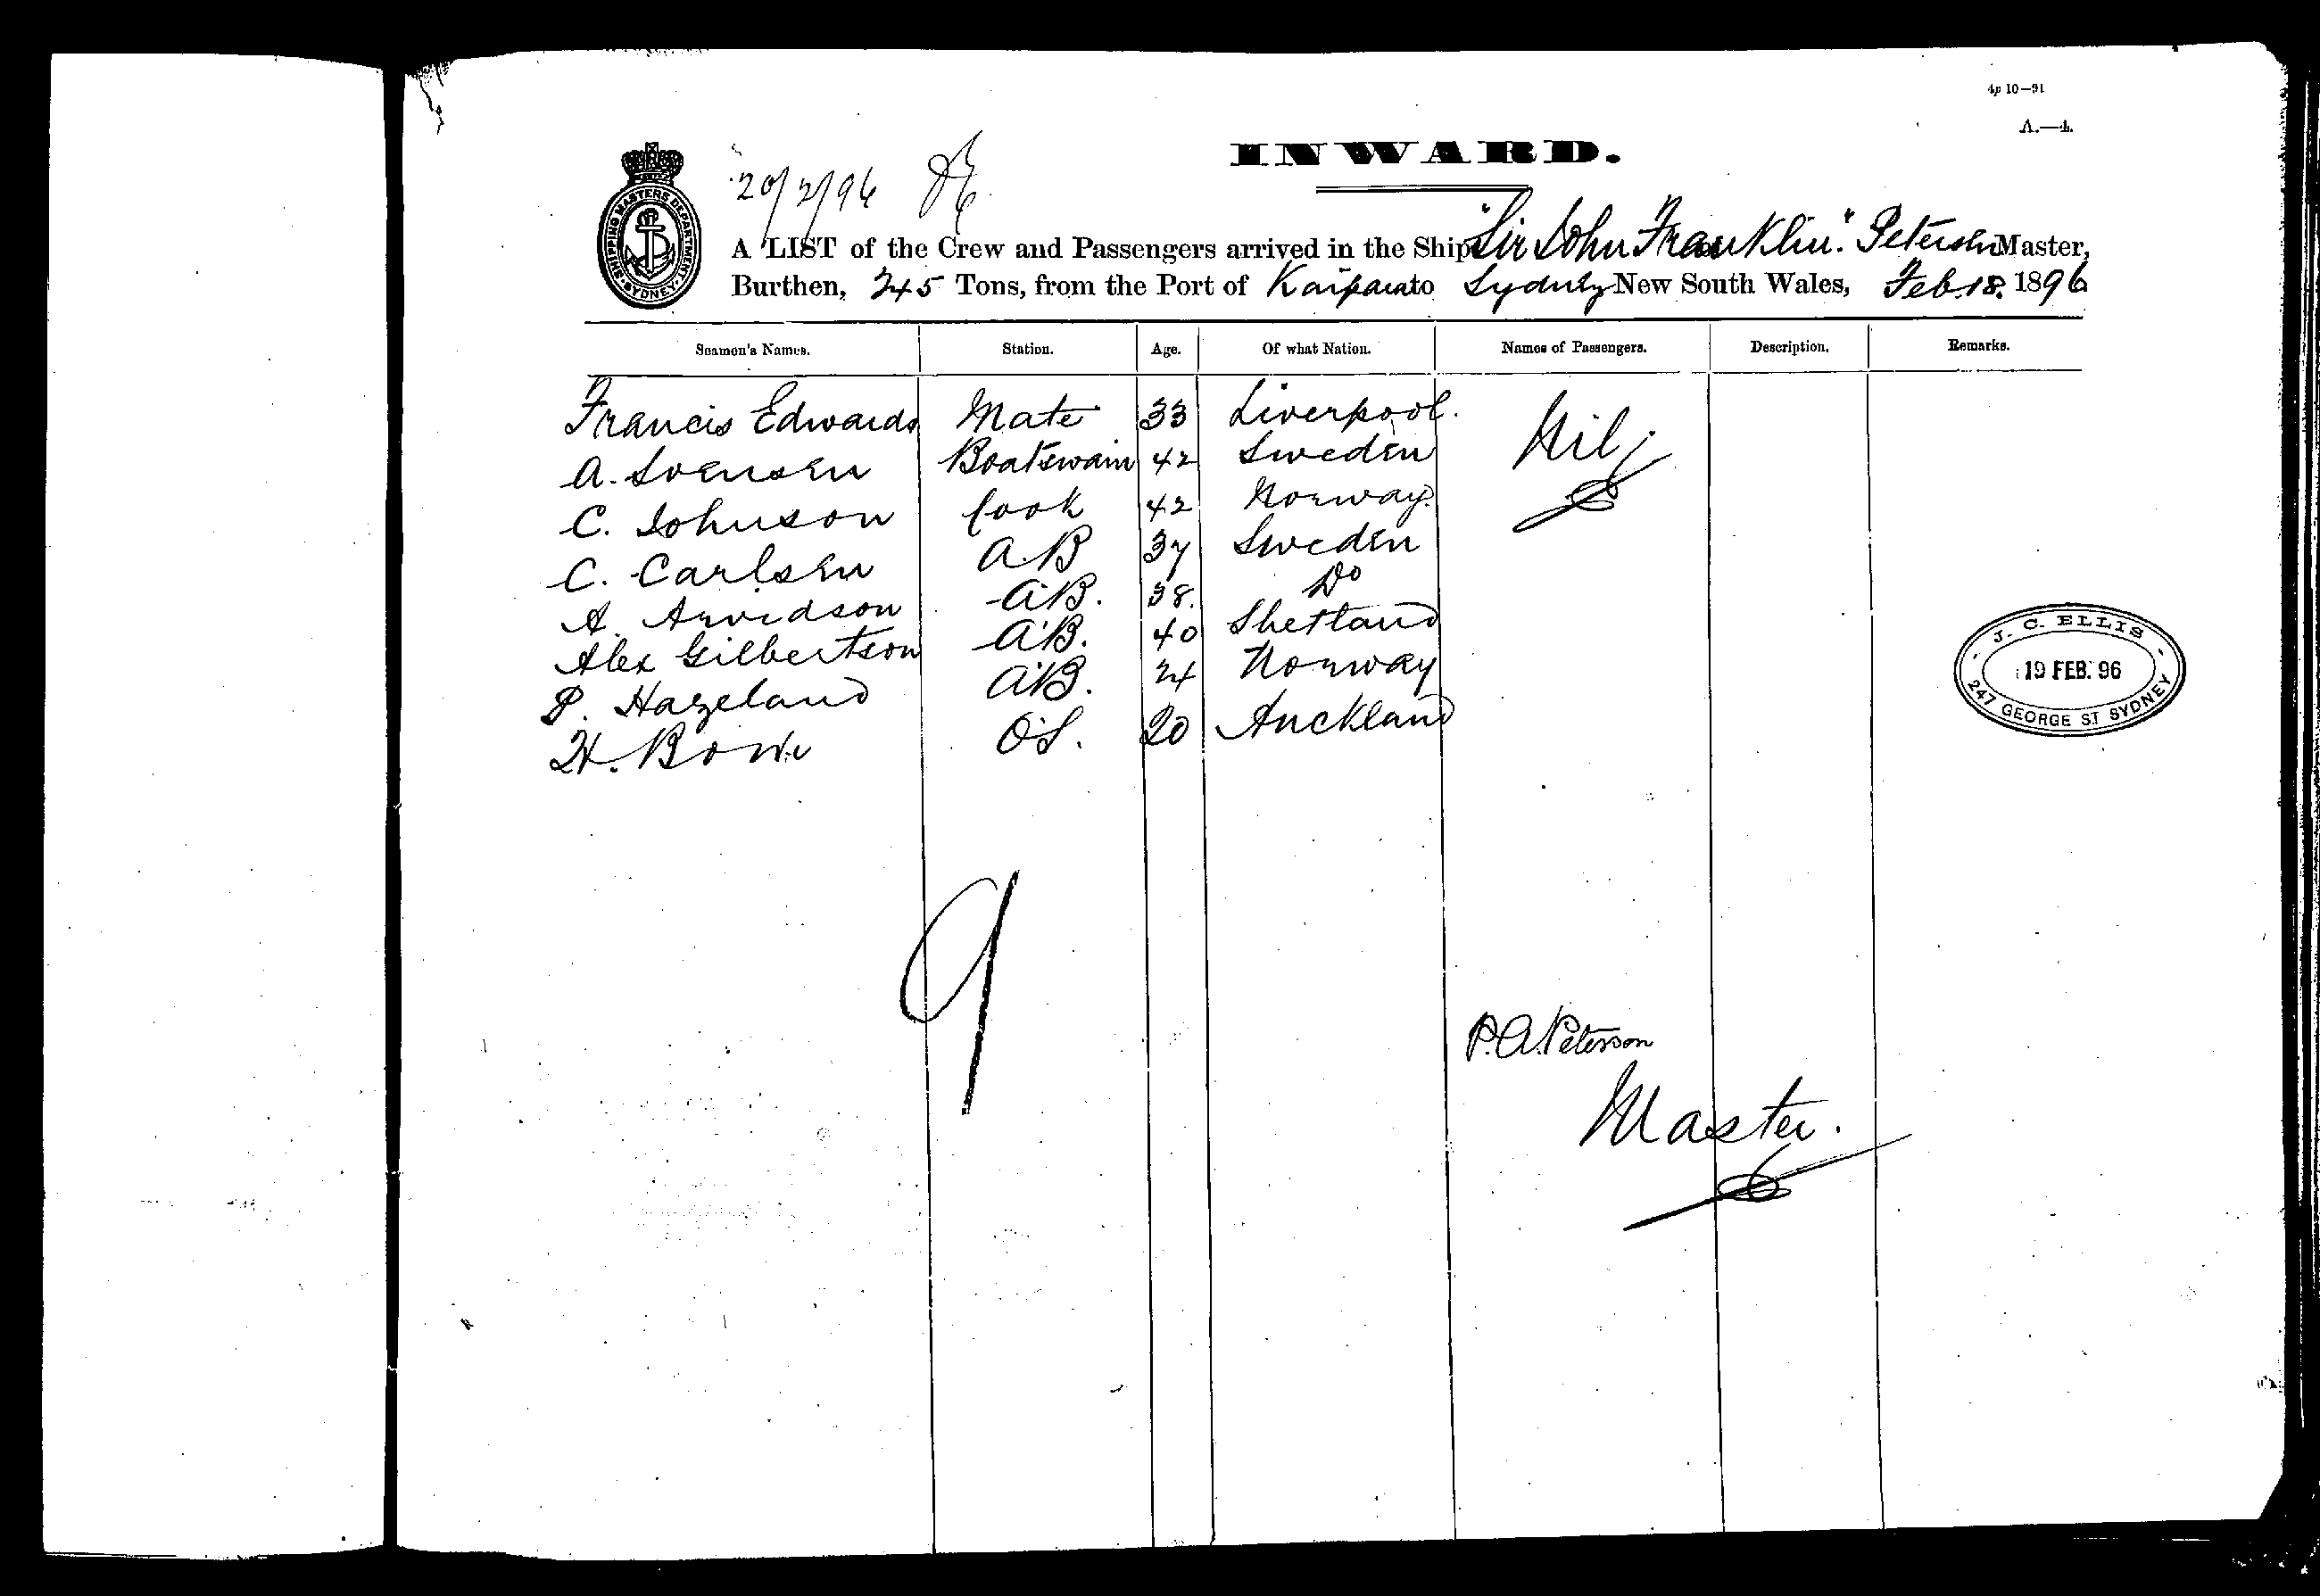 4p 10—91
A.—4.
INWARD.
20/2/96
SHIPPING MASTERS DEPARTMENT SYDNEY
A LIST of the Crew and Passengers arrived in the Ship "Sir John Franklin." Petersen Master,
Burthen, 345 Tons, from the Port of Kaipara to Sydney New South Wales, Feb. 18. 1896
Seamen's Names. Station. Age. Of what Nation. Names of Passengers. Description. Remarks.
Francis Edwards Mate 33 Liverpool. Nil
A. Svensen Boatswain 42 Sweden
C. Johnson Cook 42 Norway.
C. Carlsen A.B 37 Sweden
A. Arvidson A.B. 38. Do
Alex Gilbertson A.B. 40 Shetland
P. Hazeland A.B. 24 Norway
H. Bowe O.S. 20 Auckland
J. C. ELLIS
19 FEB. 96
247 GEORGE ST SYDNEY
9
P. A. Peterson
Master.